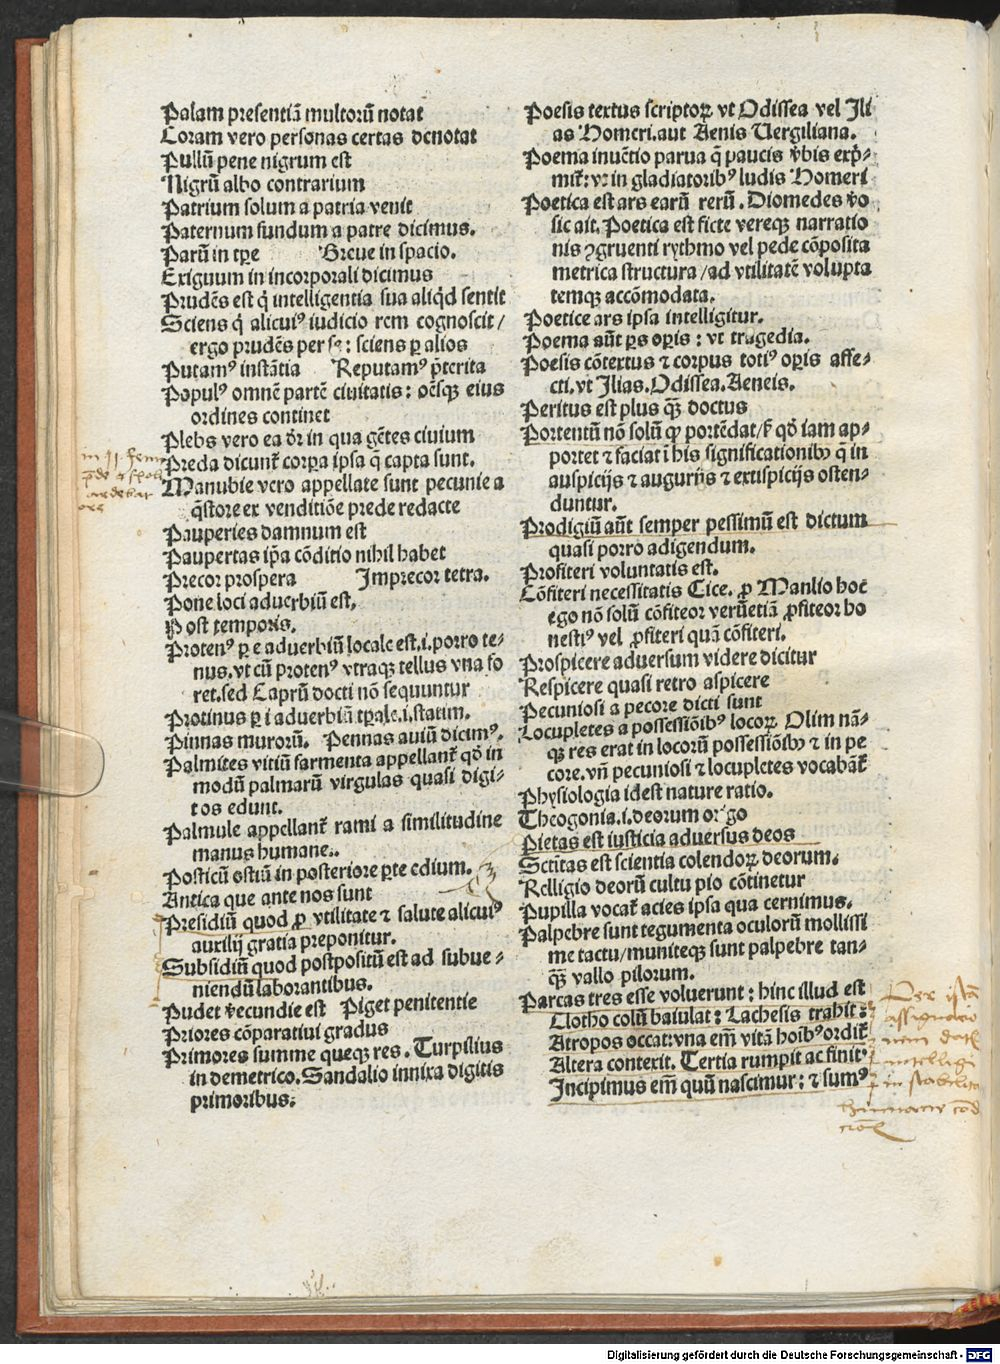 Palam presentiā multorū notat
Coram vero personas certas denotat
Pullū pene nigrum est
Nigrū albo contrarium
Patrium solum a patria venit
Paternum fundum a patre dicimus.
Parū in tꝑe Breue in spacio.
Exiguum in incorporali dicimus
Prudēs est q̇ intelligentia sua aliq̇d sentit
Sciens q̇ alicuiꝰ iudicio rem cognoscit /
ergo prudēs per se : sciens ꝑ alios
Putamꝰ instātia Reputamꝰ p̄terita
Populꝰ omnē partē ciuitatis : oēsqꝫ eius
ordines continet
Plebs vero ea dr̄ in qua gētes ciuium
Preda dicunt̄ corꝑa ipsa q̄ capta sunt.
Manubie vero appellate sunt pecunie a
q̄store ex venditiōe prede redacte
Pauperies damnum est
Paupertas ip̄a cōditio nihil habet
Precor prospera Imprecor tetra.
Pone loci aduerbiū est.
Post temporis.
Protenꝰ ꝑ e aduerbiū locale est.i.porro te-
nus.vt cū protenꝰ vtraqꝫ tellus vna fo
ret.sed Caprū docti nō sequuntur
Protinus ꝑ i aduerbiū tꝑale.i.statim.
Pinnas murorū. Pennas auiū dicimꝰ.
Palmites vitiū sarmenta appellant̄ qō in
modū palmarū virgulas quasi digi-
tos edunt.
Palmule appellant̄ rami a similitudine
manus humane.
Posticū ostiū in posteriore ꝑte edium.
Antica que ante nos sunt
Presidiū quod ꝓ vtilitate ⁊ salute alicuiꝰ
auxilij gratia preponitur.
Subsidiū quod postpositū est ad subue-
niendū laborantibus.
Pudet v̄ecundie est Piget penitentie
Priores cōparatiui gradus
Primores summe queqꝫ res. Turpilius
in demetrico. Sandalio innixa digitis
primoribus:
Poesis textus scriptoꝝ vt Odissea vel Ili
as Homeri.aut Aenis Vergiliana.
Poema inuētio parua q̄ paucis v̄bis exp̄-
mit̄: vt in gladiatoribꝰ ludis Homeri
Poetica est ars earū rerū. Diomedes v̄o
sic ait. Poetica est ficte vereqꝫ narratio
nis ꝯgruenti rythmo vel pede cōposita
metrica structura / ad vtilitatē volupta
temqꝫ accōmodata.
Poetice ars ipsa intelligitur.
Poema aūt ꝑs oꝑis : vt tragedia.
Poesis cōtextus ⁊ corpus totiꝰ oꝑis affe-
cti.vt Ilias.Odissea.Aeneis.
Peritus est plus qꝫ̄ doctus
Portentū nō solū qꝫ portēdat/sꝫ qō iam ap-
portet ⁊ faciat ī his significationibꝫ q̄ in
auspicijs ⁊ augurijs ⁊ extispicijs osten-
duntur.
Prodigiū aūt semper pessimū est dictum
quasi porro adigendum.
Profiteri voluntatis est.
Cōfiteri necessitatis Cice. ꝓ Manlio hoc
ego nō solū cōfiteor verūetiā ꝓfiteor ho
nestiꝰ vel ꝓfiteri quā cōfiteri.
Prospicere aduersum videre dicitur
Respicere quasi retro aspicere
Pecuniosi a pecore dicti sunt
Locupletes a possessiōibꝰ locoꝝ. Olim nā-
qꝫ res erat in locorū possessiōibꝫ ⁊ in pe
core.vn̄ pecuniosi ⁊ locupletes vocabāt̄
Physiologia idest nature ratio.
Theogonia.i.deorum origo
Pietas est iusticia aduersus deos
Sctitas est scientia colendoꝝ deorum.
Relligio deorū cultu pio cōtinetur
Pupilla vocat̄ acies ipsa qua cernimus.
Palpebre sunt tegumenta oculorū mollissi
me tactu/muniteqꝫ sunt palpebre tan-
qꝫ̄ vallo pilorum.
Parcas tres esse voluerunt : hinc illud est
Clotho colū baiulat: Lachesis trahit :
Atropos occat:vna em̄ vitā hoībꝰ ordit̄
Altera contexit. Tertia rumpit ac finit
Incipimus em̄ quū nascimur: ⁊ sumꝰ
Per istā
assignatio
nem
intelligi
in stabilita
humane cōd
Digitalisierung gefördert durch die Deutsche Forschungsgemeinschaft - DFG